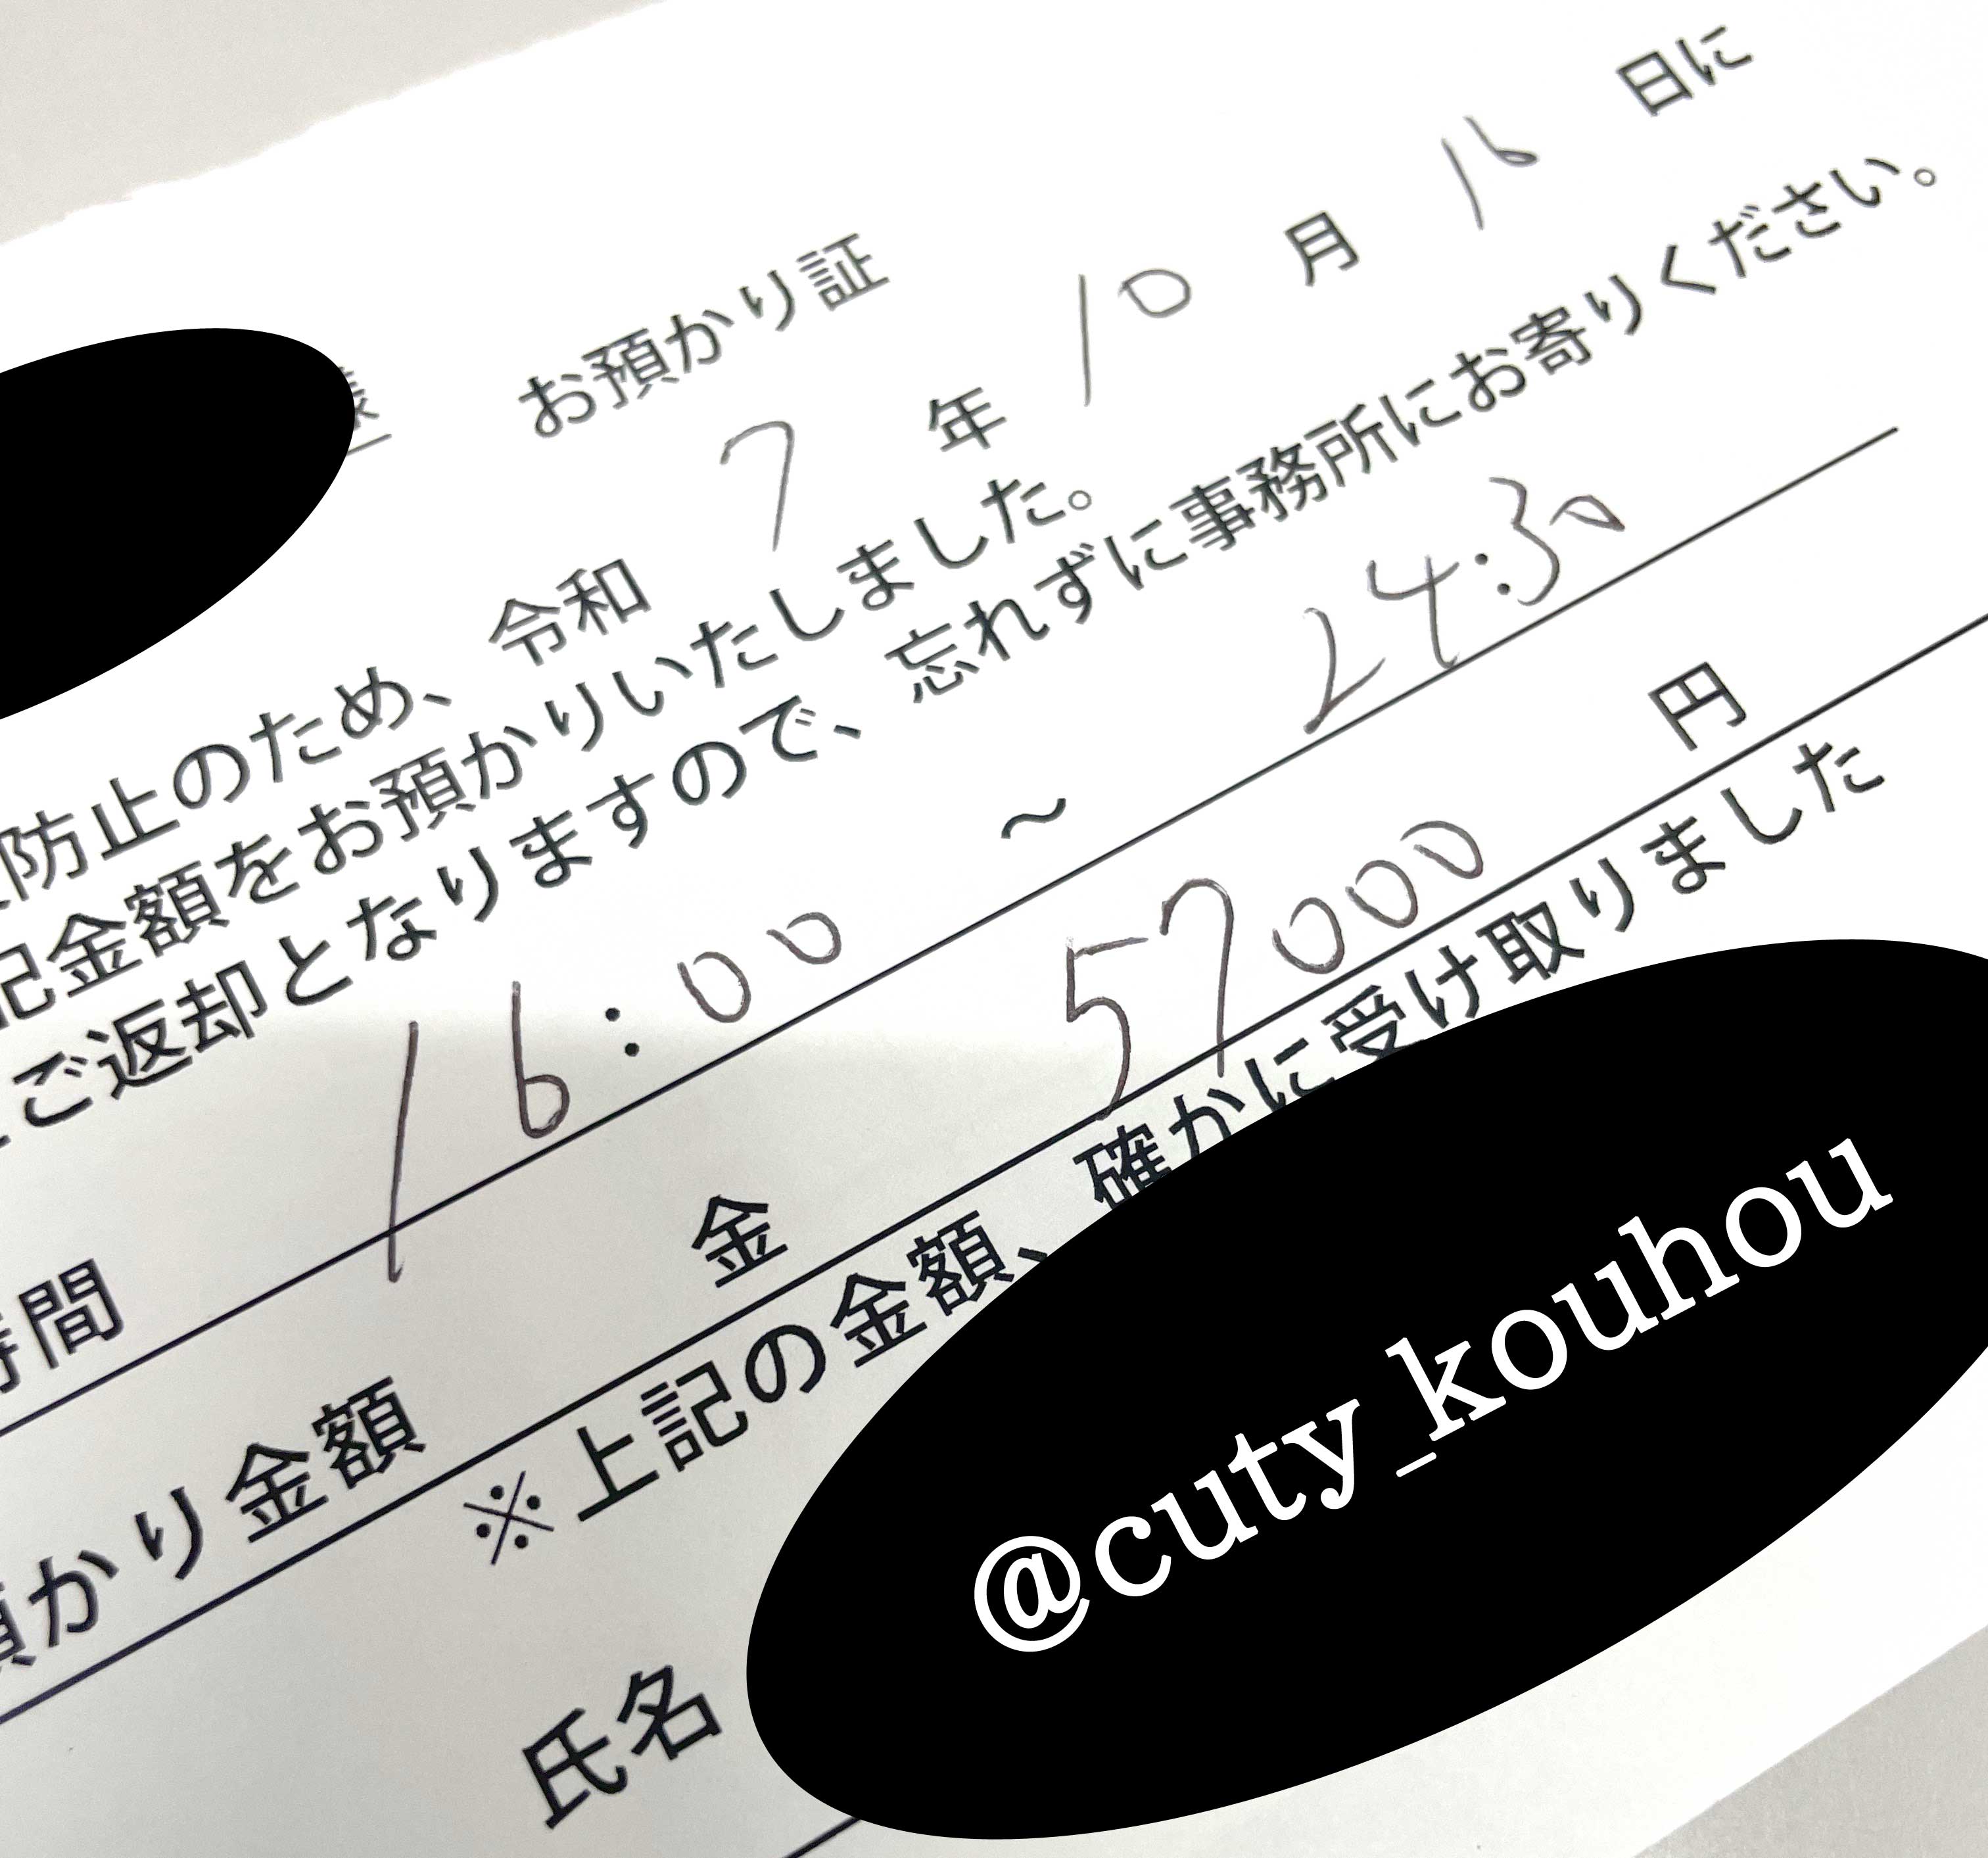 様 お預かり証
防止のため、令和 7 年 10 月 16 日に
記金額をお預かりいたしました。
ご返却となりますので、忘れずに事務所にお寄りください。
時間 16:00 ～ 24:30
預かり金額 金 57000 円
※上記の金額、確かに受け取りました
氏名
@cuty_kouhou